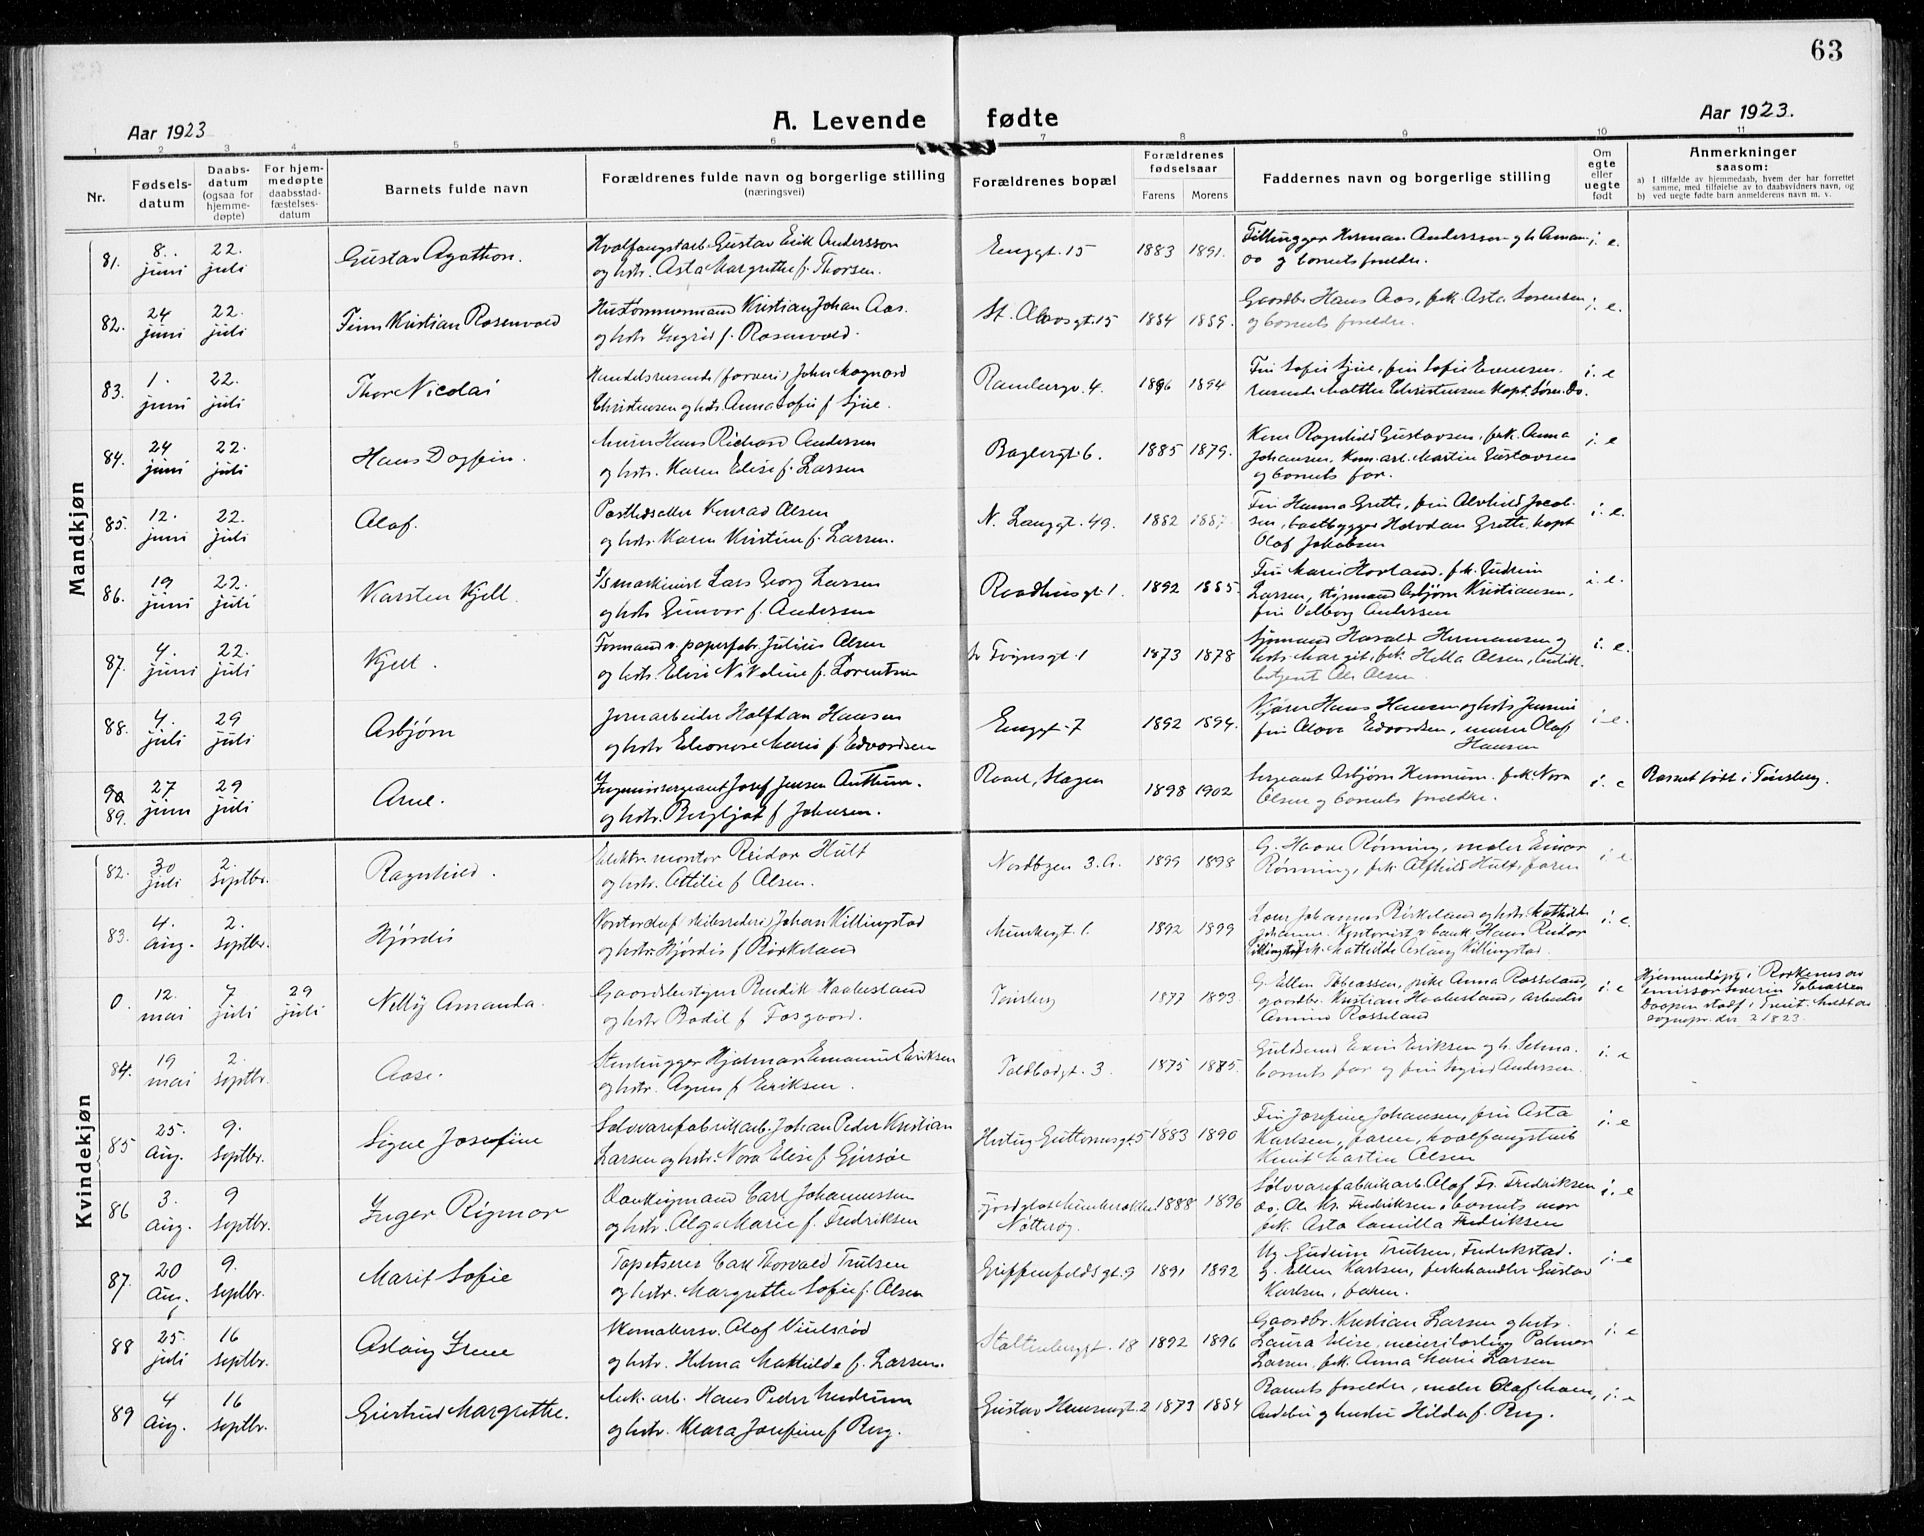 63
Aar 1923
A. Levende fødte
Aar 1923.
1 2 3 4 5 6 7 8 9 10 11
Nr.
Fødsels-
datum
Daabs-
datum
(ogsaa for
hjemme-
døpte)
For hjem-
medøpte
daabsstad-
fæstelses-
datum
Barnets fulde navn
Forældrenes fulde navn og borgerlige stilling
(næringsvei)
Forældrenes bopæl
Forældrenes
fødselsaar
Farens Morens
Faddernes navn og borgerlige stilling
Om
egte
eller
uegte
født
Anmerkninger
saasom:
a) I tilfælde av hjemmedaab, hvem der har forrettet
samme, med tilføielse av to daabsvidners navn, og
b) ved uegte fødte barn anmelderens navn m. v.
Mandkjøn
81. 8. juni 22. juli Gustav Agathon.
Hvalfangstarb. Gustav Erik Andersson
og hstr. Asta Margrethe f. Thorsen.
Enggt. 15 1883 1891.
Herman Andersson
og barnets foreldre.
i. e.
82. 24 juni 22. juli Finn Kristian Rosenvold
Hustømmermand Kristian Johan Aas.
og hstr. Ingrid f. Rosenvold.
St. Olavsgt. 15 1884 1889.
Gaardbr. Hans Aas, frk. Asta Sørensen
og barnets foreldre.
i. e.
83. 1. juni 22. juli Thor Nicolai
Handelsreisende (farveri) John Magnard
Christensen og hstr. Anna Sofie f.
Rambergv. 4. 1896 1894
Fru Sofie
Christensen
i. e
84. 24 juni 22. juli Hans Dagfin.
Murer Hans Richard Andersen
og hstr. Karen Elise f. Larsen
Baglergt. 6. 1885 1879.
Kone Ragnhild Gustavsen, frk. Anna
Johansen, Kom. arb. Martin Gustavsen
og barnets far.
i. e
85. 12. juni 22. juli Olaf.
Konrad Olsen
og hstr. Karen Kristine f. Larsen.
N. Langgt. 49. 1882 1887.
Fru Hanna Grette, fru Alvhild Jacob-
sen, baatbygger Halvdan Grette, kapt.
Olaf Jakobsen
i. e.
86. 19 juni 22. juli Karsten Kjell.
S/s maskinist Lars Georg Larsen
og hstr. Gunvor f. Andersen
Raadhusgt. 1. 1892 1885.
Fru Marie Hovland. frk. Gudrun
Larsen, Asbjørn Kristiansen,
fru Valborg Andersen
i. e.
87. 4. juni 22. juli Kjell.
Formand v. papirfabr. Julius Olsen
og hstr. Elise Nikoline f. Lorentsen
1873 1878
Sjømand Harald Hermansen og
hstr. Margit, frk. Hella Olsen,
Olsen.
i. e.
88. 4. juli 29 juli Asbjørn
Jernarbeider Halfdan Hansen
og hstr. Eleonore Marie f. Edvardsen
Enggt. 7 1892 1894.
Kjører Hans Hansen og hstr. Jenny
fru Olava Edvardsen, murer Olaf
Hansen
i. e.
90 89. 27 juni 29 juli Arne.
Ingeniørsergeant Josef Jensen
og hstr. Bergljot f. Johnsen.
Raael, Slagen 1898 1902
Sergeant Asbjørn Hennum. frk. Nora
Olsen og barnets foreldre.
i. e
Barnet født i Tønsberg.
Kvindekjøn
82. 30 juli 2. septbr. Ragnhild.
Elektr. montør Reidar Hult
og hstr. Ottilie f. Olsen.
Nordbyen 3. a. 1899 1898
Rønning, maler Einar
Rønning, frk. Alfhild Hult, faren
i. e.
83. 4. Aug. 2. septbr. Hjørdis
Johan Killingstad
og hstr. Hjørdis f. Birkeland
Munkegt. 1. 1892 1899
Johannes Birkeland og hstr. Mathilde
Kontorist v. bank Hans Reidar
Killingstad frk. Mathilde Aslaug Killingstad.
i. e.
0. 12. mai 7 juli 29 juli Nelly Amanda.
Gaardsbestyrer Bendik Haabesland
og hstr. Bodil f. Fosgaard.
Tønsberg 1877 1893.
G. Ellen Tobiassen, frk. Anna Rosseland,
gaardbr. Kristian Haabesland, arbeider
Rosseland
i. e
Hjemmedøpt i av
emissær Severin Tobiassen
84. 19 mai 2. septbr. Aase.
Stenhugger Hjalmar Emanuel Eriksen
og hstr. Agnes f. Eriksen.
Toldbodgt. 3. 1875 1885.
Guldsmed Eriksen og h. Selma.
barnets far og fru Sigrid Andersen.
i. e
85 25. Aug. 9. septbr. Signe Josefine
Sølvvarefabrikarb. Johan Peder Kristian
Larsen og hstr. Nora Elise f. Gjersøe
Hertug Guttormsgt. 5 1883 1890
Fru Josefine Johansen, fru Asta
Karlsen, faren, hvalfangstarb.
Knut Martin Olsen
i. e
86 3. Aug. 9 septbr. Inger Rigmor
Carl Johannessen
og hstr. Olga Marie f. Fredriksen
Nøtterøy 1888 1896
Sølvvarefabrikarb. Olaf Fr. Fredriksen
do. Ole Kr. Fredriksen, barnets mor
frk. Asta Camilla Fredriksen
i. e
87. 20 Aug. 9. septbr. Marit Sofie
Tapetserer Carl Thorvald Trulsen
og hstr. Margrethe Sofie f. Olsen
Griffenfeldsgt. 9 1891 1892
Gudrun Trulsen, Fredrikstad.
g. Ellen Karlsen, fiskehandler Gustav
Karlsen, faren.
i. e
88 25. juli 16 septbr. Aslaug Irene
Olaf
og hstr. Helma Mathilde f. Larsen.
Stoltenbergt. 18 1892 1896
Gaardbr. Kristian Larsen og hstr.
Laura Elise, meierilærling Palmar
Larsen, frk. Anna Marie Larsen
i. e
89 4 Aug. 16 septbr. Gjertrud Margrethe.
Mek. arb. Hans Peder
og hstr. Klara Josefine f. Berg.
Gustav Hansensgt. 2 1873 1884
Barnets foreldre, maler Olaf Moen,
Andebu og hustru Hilda f. Berg.
i. e